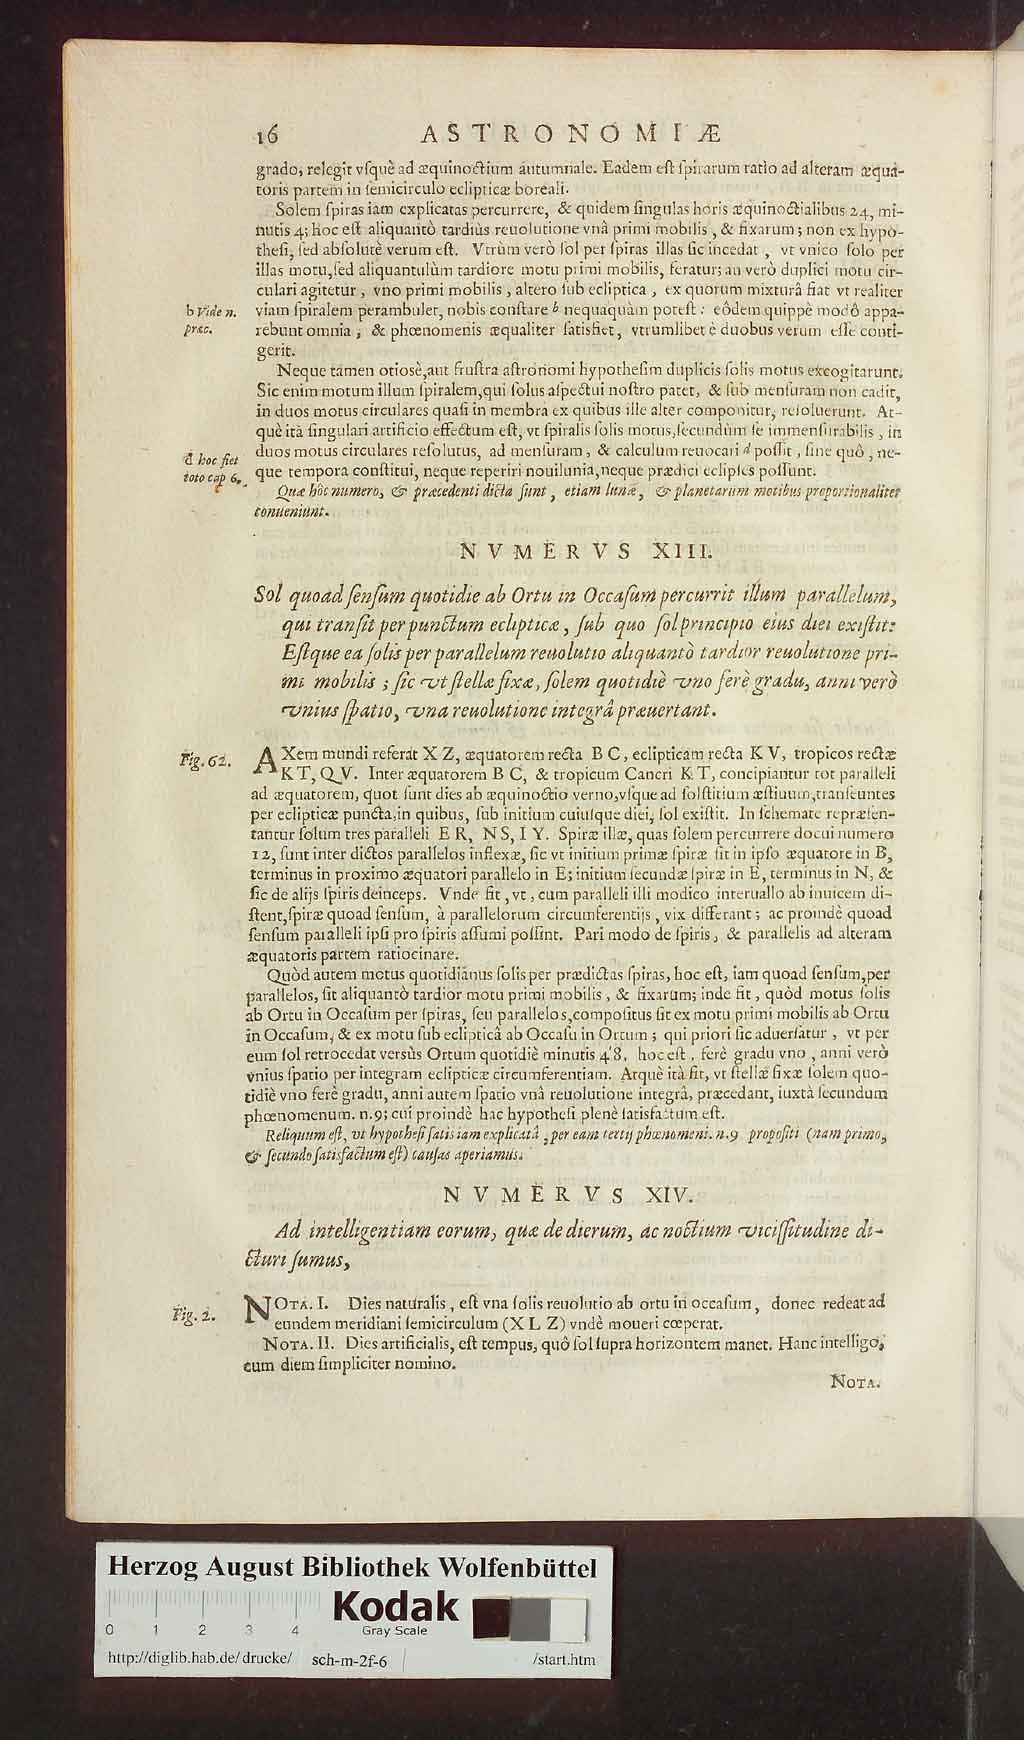 16 ASTRONOMIÆ
grado, relegit vſquè ad æquinoctium autumnale. Eadem eſt ſpirarum ratio ad alteram æqua-
toris partem in ſemicirculo eclipticæ boreali.
Solem ſpiras iam explicatas percurrere, & quidem ſingulas horis æquinoctialibus 24, mi-
nutis 4; hoc eſt aliquantò tardiùs reuolutione vnâ primi mobilis, & fixarum; non ex hypo-
theſi, ſed abſolutè verum eſt. Vtrùm verò ſol per ſpiras illas ſic incedat, vt vnico ſolo per
illas motu, ſed aliquantulùm tardiore motu primi mobilis, feratur; an verò duplici motu cir-
culari agitetur, vno primi mobilis, altero ſub ecliptica, ex quorum mixturâ fiat vt realiter
b Vide n. viam ſpiralem perambulet, nobis conſtare b nequaquàm poteſt: eôdem quippè modô appa-
præc. rebunt omnia, & phœnomenis æqualiter ſatisfiet, vtrumlibet è duobus verum eſſe conti-
gerit.
Neque tamen otiosè, aut fruſtra aſtronomi hypotheſim duplicis ſolis motus excogitarunt.
Sic enim motum illum ſpiralem, qui ſolus aſpectui noſtro patet, & ſub menſuram non cadit,
in duos motus circulares quaſi in membra ex quibus ille alter componitur, reſoluerunt. At-
què ità ſingulari artificio effectum eſt, vt ſpiralis ſolis motus, ſecundùm ſe immenſurabilis, in
d hoc fiet duos motus circulares reſolutus, ad menſuram, & calculum reuocari d poſſit, ſine quô, ne-
toto cap 6. que tempora conſtitui, neque reperiri nouilunia, neque prædici eclipſes poſſunt.
Quæ hôc numero, & præcedenti dicta ſunt, etiam lunæ, & planetarum motibus proportionaliter
conueniunt.
NVMERVS XIII.
Sol quoad ſenſum quotidie ab Ortu in Occaſum percurrit illum parallelum,
qui tranſit per punctum eclipticæ, ſub quo ſol principio eius diei exiſtit:
Eſtque ea ſolis per parallelum reuolutio aliquantò tardior reuolutione pri-
mi mobilis; ſic vt ſtellæ fixæ, ſolem quotidiè vno ferè gradu, anni verò
vnius ſpatio, vna reuolutione integrâ præuertant.
Fig. 62. AXem mundi referat X Z, æquatorem recta B C, eclipticam recta K V, tropicos rectæ
K T, Q V. Inter æquatorem B C, & tropicum Cancri K T, concipiantur tot paralleli
ad æquatorem, quot ſunt dies ab æquinoctio verno, vſque ad ſolſtitium æſtiuum, tranſeuntes
per eclipticæ puncta, in quibus, ſub initium cuiuſque diei, ſol exiſtit. In ſchemate repræſen-
tantur ſolum tres paralleli E R, N S, I Y. Spiræ illæ, quas ſolem percurrere docui numero
12, ſunt inter dictos parallelos inflexæ, ſic vt initium primæ ſpiræ ſit in ipſo æquatore in B,
terminus in proximo æquatori parallelo in E; initium ſecundæ ſpiræ in E, terminus in N, &
ſic de alijs ſpiris deinceps. Vnde fit, vt, cum paralleli illi modico interuallo ab inuicem di-
ſtent, ſpiræ quoad ſenſum, à parallelorum circumferentijs, vix differant; ac proindè quoad
ſenſum paralleli ipſi pro ſpiris aſſumi poſſint. Pari modo de ſpiris, & parallelis ad alteram
æquatoris partem ratiocinare.
Quòd autem motus quotidianus ſolis per prædictas ſpiras, hoc eſt, iam quoad ſenſum, per
parallelos, ſit aliquantò tardior motu primi mobilis, & fixarum; inde fit, quòd motus ſolis
ab Ortu in Occaſum per ſpiras, ſeu parallelos, compoſitus ſit ex motu primi mobilis ab Ortu
in Occaſum, & ex motu ſub eclipticâ ab Occaſu in Ortum; qui priori ſic aduerſatur, vt per
eum ſol retrocedat versùs Ortum quotidiè minutis 4'8, hoc eſt, ferè gradu vno, anni verò
vnius ſpatio per integram eclipticæ circumferentiam. Atquè ità fit, vt ſtellæ fixæ ſolem quo-
tidiè vno ferè gradu, anni autem ſpatio vnâ reuolutione integrâ, præcedant, iuxtà ſecundum
phœnomenum. n. 9; cui proindè hac hypotheſi plenè ſatisfactum eſt.
Reliquum eſt, vt hypotheſi ſatis iam explicatâ, per eam tertij phœnomeni. n. 9 propoſiti (nam primo,
& ſecundo ſatisfactum eſt) cauſas aperiamus.
NVMERVS XIV.
Ad intelligentiam eorum, quæ de dierum, ac noctium viciſſitudine di-
cturi ſumus,
Fig. 2. NOTA. I. Dies naturalis, eſt vna ſolis reuolutio ab ortu in occaſum, donec redeat ad
eundem meridiani ſemicirculum (X L Z) vndè moueri cœperat.
NOTA. II. Dies artificialis, eſt tempus, quô ſol ſupra horizontem manet. Hanc intelligo,
cum diem ſimpliciter nomino.
NOTA.
Herzog August Bibliothek Wolfenbüttel
Kodak
0 1 2 3 4 Gray Scale
http://diglib.hab.de/drucke/ sch-m-2f-6 /start.htm